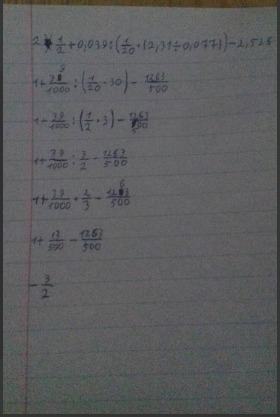 2 · 1/2 + 0,039 : (1/20 · (2,31 ÷ 0,077)) - 2,526
1 + 39/1000 : (1/20 · 30) - 1263/500
1 + 39/1000 : (1/2 · 3) - 1263/500
1 + 39/1000 : 3/2 - 1263/500
1 + 39/1000 · 2/3 - 1263/500
1 + 13/500 - 1263/500
- 3/2